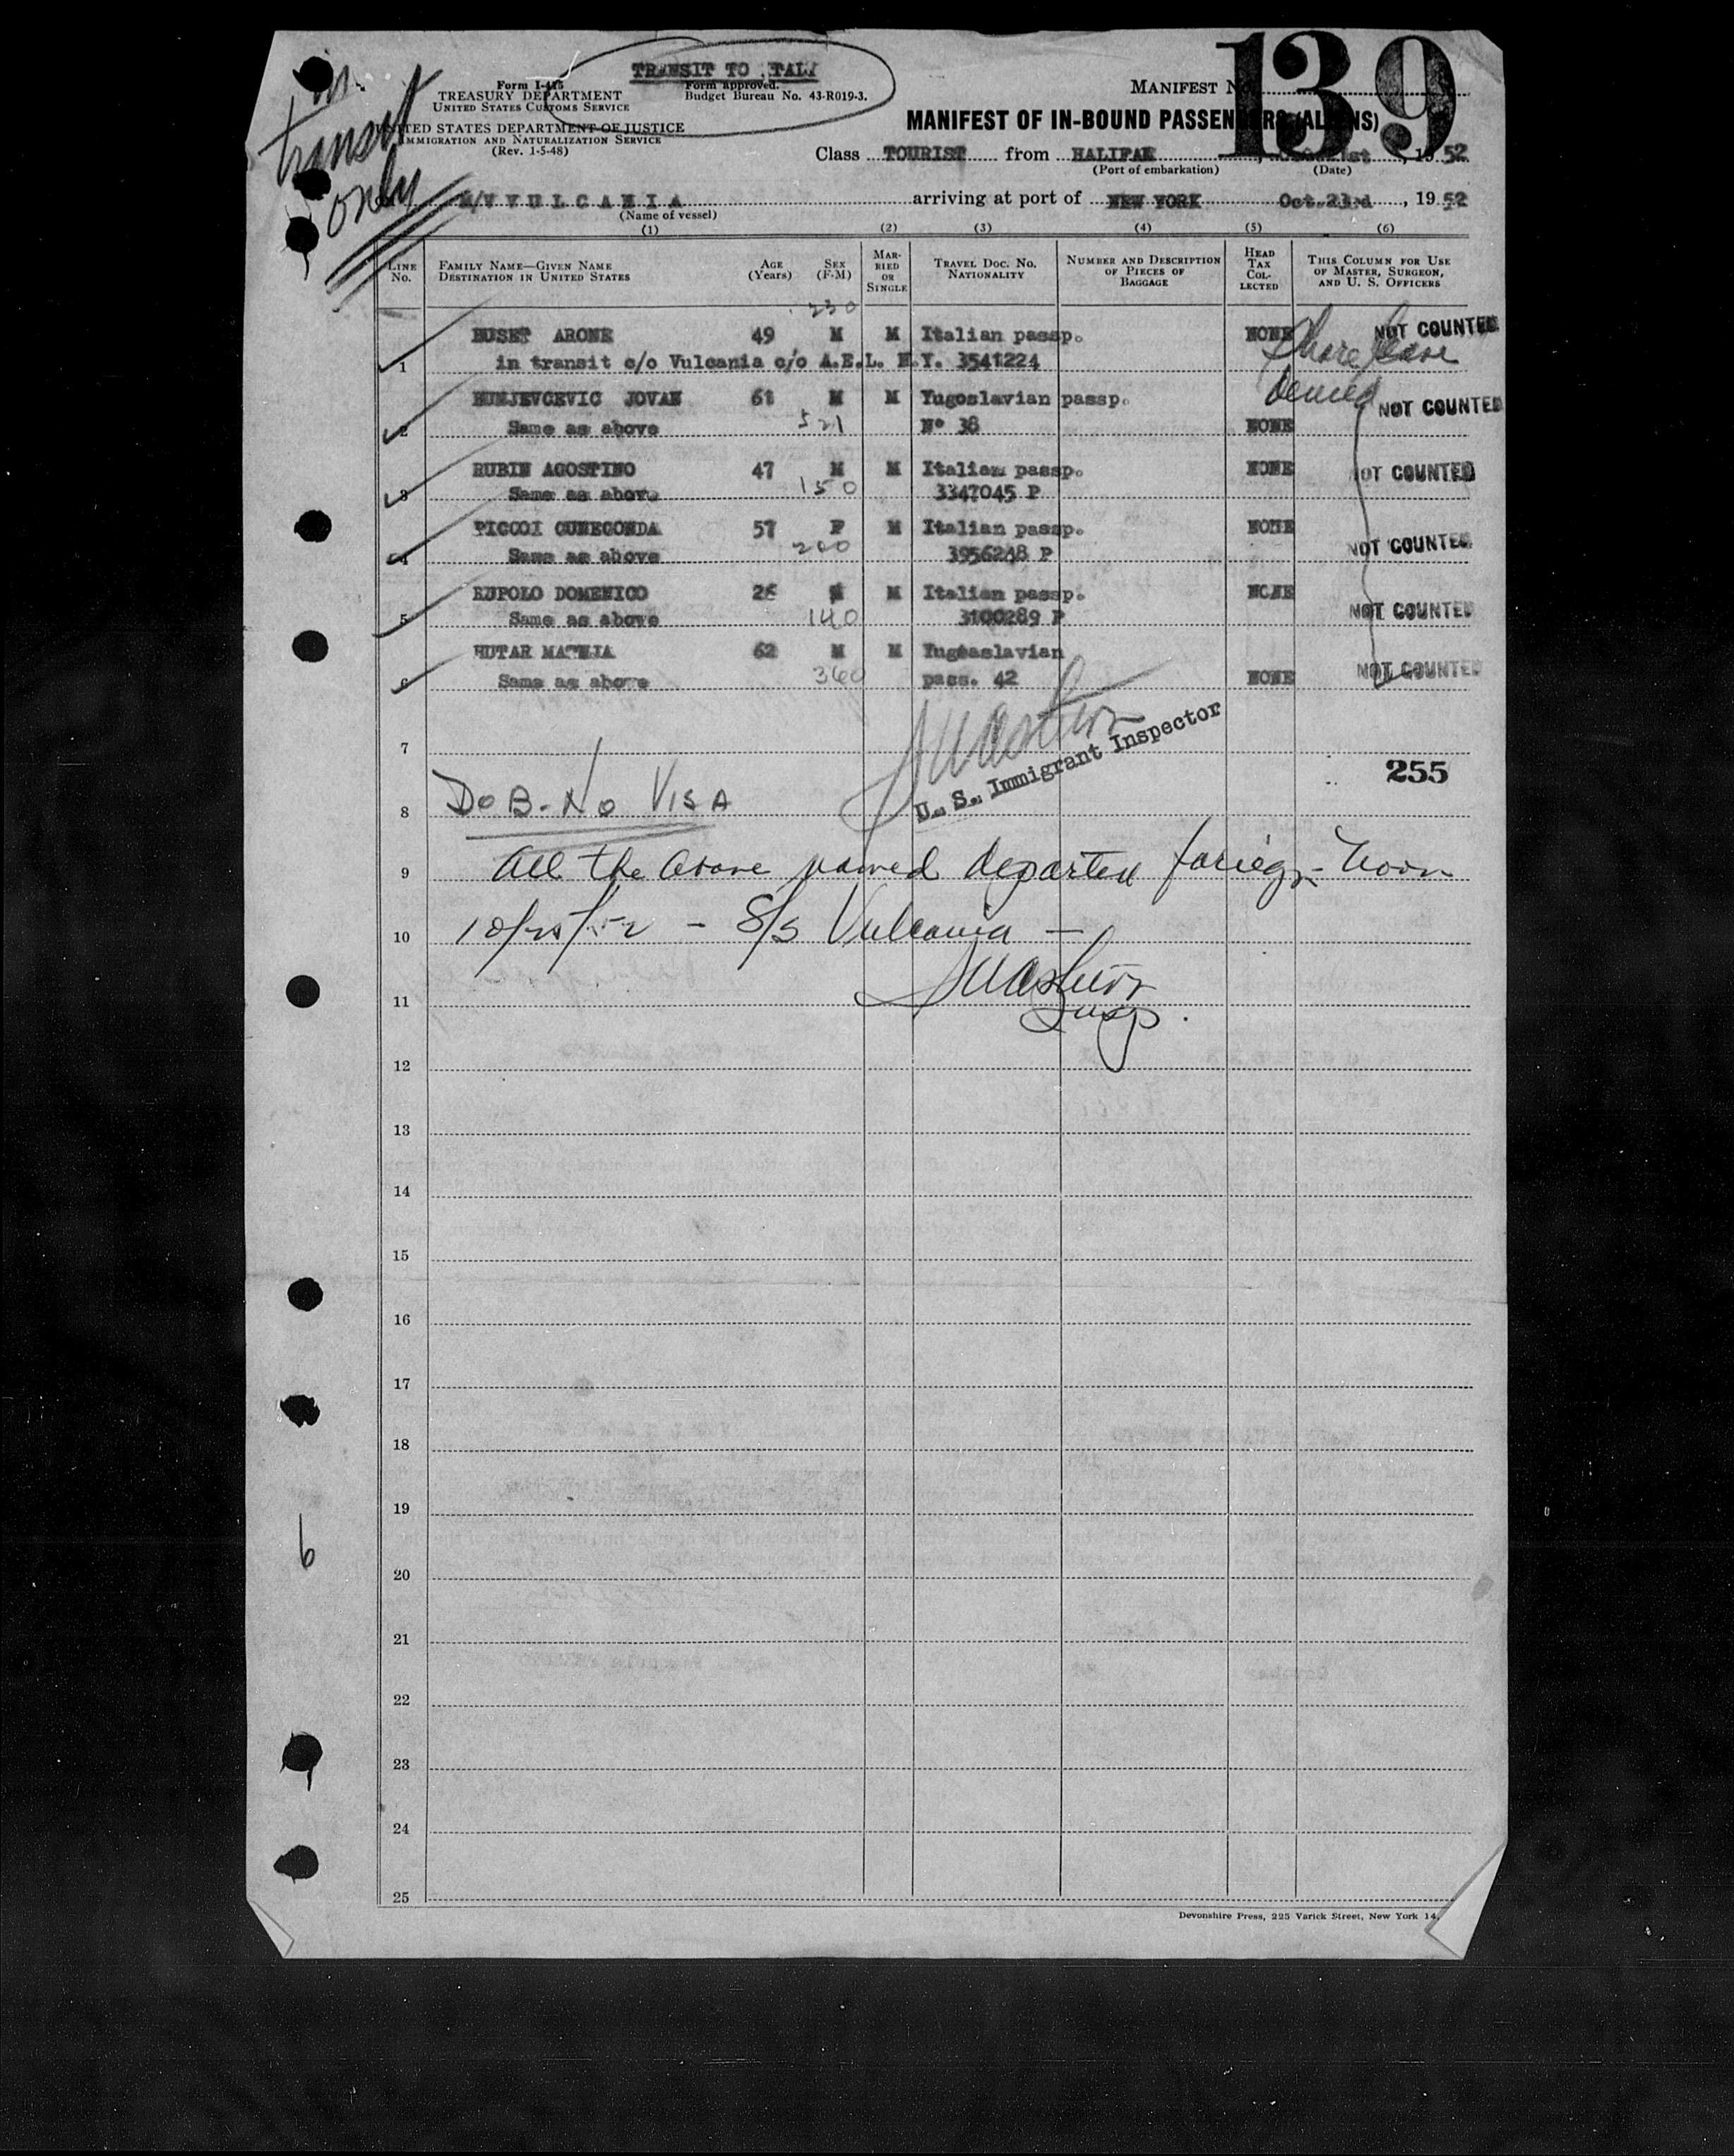 139
in
transit
only
TRANSIT TO ITALY
Form I-415
TREASURY DEPARTMENT
UNITED STATES CUSTOMS SERVICE
Form approved.
Budget Bureau No. 43-R019-3.
UNITED STATES DEPARTMENT OF JUSTICE
IMMIGRATION AND NATURALIZATION SERVICE
(Rev. 1-5-48)
MANIFEST No.
MANIFEST OF IN-BOUND PASSENGERS (ALIENS)
Class TOURIST from HALIFAX, 1952
(Port of embarkation) (Date)
M/V VULCANIA arriving at port of NEW YORK Oct.23rd, 1952
(Name of vessel)
(1) (2) (3) (4) (5) (6)
LINE No. FAMILY NAME—GIVEN NAME DESTINATION IN UNITED STATES AGE (Years) SEX (F-M) MARRIED OR SINGLE TRAVEL DOC. NO. NATIONALITY NUMBER AND DESCRIPTION OF PIECES OF BAGGAGE HEAD TAX COLLECTED THIS COLUMN FOR USE OF MASTER, SURGEON, AND U. S. OFFICERS
230
BUSET ARONE 49 M M Italian passp. NONE NOT COUNTED
1 in transit c/o Vulcania c/o A.E.L. N.Y. 3541224 Shore leave
denied
JOVAN 61 M M Yugoslavian passp. NOT COUNTED
2 Same as above 521 Nº 38 NONE
RUBIN AGOSTINO 47 M M Italian passp. NONE NOT COUNTED
3 Same as above 150 3347045 P
PICCOI CUNEGONDA 57 F M Italian passp. NONE
4 Same as above 200 3956248 P NOT COUNTED
RUPOLO DOMENICO 26 M M Italian passp. NONE
5 Same as above 140 3100289 P NOT COUNTED
HUTAR MATEJA 62 M M Yugoaslavian
6 Same as above 360 pass. 42 NONE NOT COUNTED
U. S. Immigrant Inspector
7
255
8 DOB-No VISA
9 All the above named departed foreign - Noon
10 10/25/52 - S/S Vulcania -
11
Insp.
12
13
14
15
16
17
18
19
6
20
21
22
23
24
25
Devonshire Press, 225 Varick Street, New York 14,